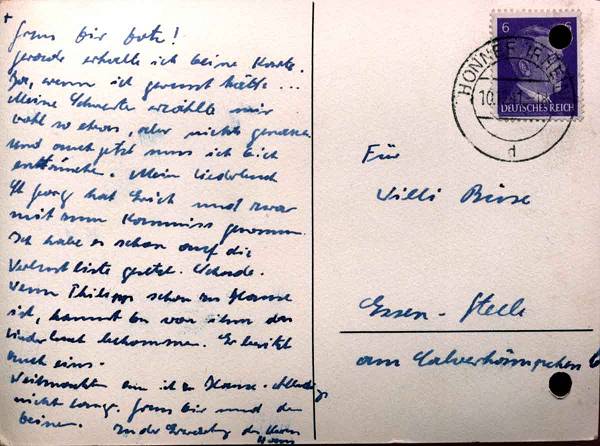 +
Gruss dir Gott!
gerade erhalte ich deine Karte.
Ja, wenn ich gewusst hätte ...
Meine Schwester erzählte mir
wohl so etwas, aber nichts genaues.
Und auch jetzt muss ich dich
enttäuschen. Mein Liederbuch
St Georg hat Erich und zwar
mit zum Kommiss genommen.
Ich habe es schon auf die
Verlustliste gesetzt. Schade.
Wenn Philipp schon zu Hause
ist, kannst du von ihm das
Liederbuch bekommen. Er besitzt
auch eins.
Weihnachten bin ich zu Hause. Allerdings
nicht lang. Gruss dir und den
deinen. In der Erwartung des Herrn
6 6
DEUTSCHES REICH
HONNEF
10.
d
Für
Willi
Essen-Steele
am